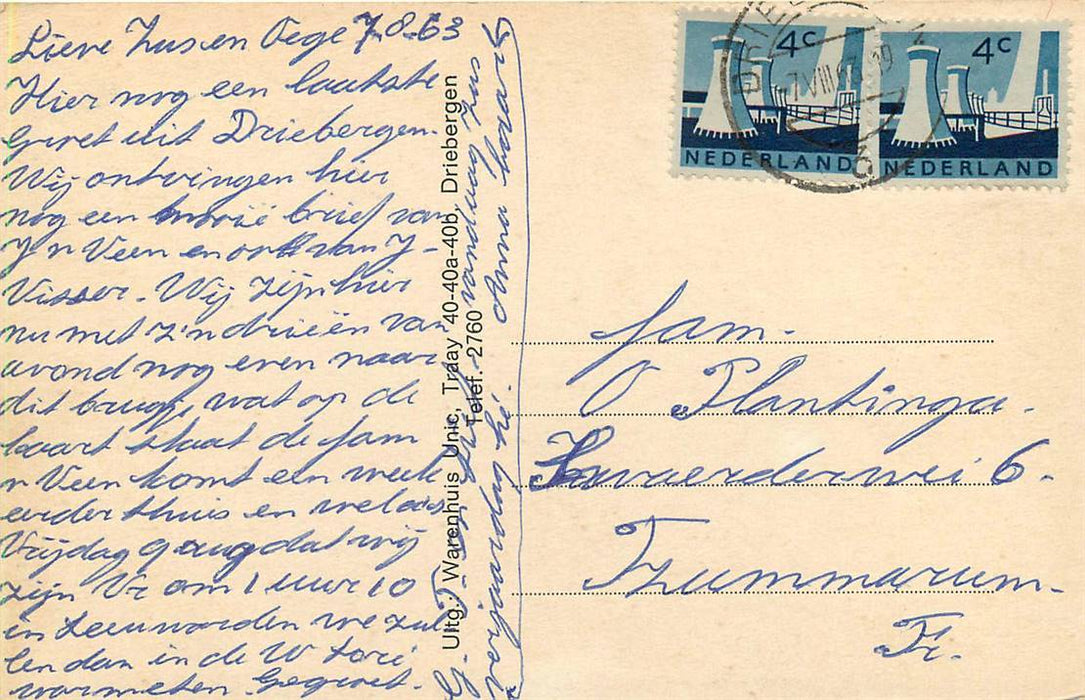 Lieve Zus en Oege 7-8-63
Hier nog een laatste
Groet uit Driebergen.
Wij ontvingen hier
nog een mooië brief van
J v Veen en ook van J-
Visser. Wij zijn hier
nu met z'n drieën van
avond nog even naar
dit brugs, wat op de
kaart staat de fam
v Veen komt een week
eerder thuis en wel a.s
Vrijdag 9 aug dat wij
zijn Vr om 1 uur 10
in Leeuwarden we zul
len dan in de W
warm eten Gegroet.
vandaag Zus
verjaardag hé. Anna
Uitg.: Warenhuis Unic, Traay 40-40a-40b, Driebergen
Telef. 2760
4c
NEDERLAND
4c
NEDERLAND
7 VIII 63 19
fam.
O Plantinga.
6.
Tzummarum.
Fr.